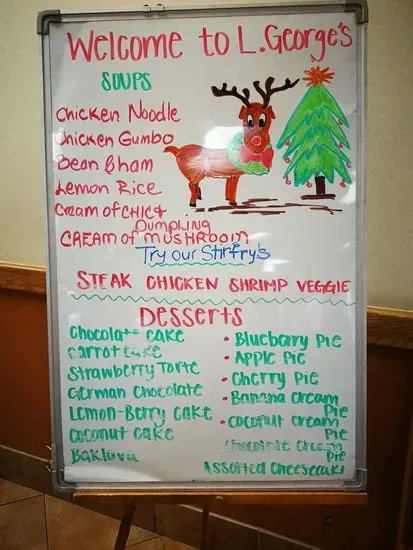 Welcome to L.George's
SOUPS
Chicken Noodle
Chicken Gumbo
Bean & ham
Lemon Rice
Cream of CHIC &
Dumpling
CREAM of MUSHROOM
Try our Stirfry's
STEAK CHICKEN SHRIMP VEGGIE
Desserts
Chocolate cake
carrot cake
Strawberry Torte
German Chocolate
LEMON-Berry CAKE
Coconut cake
Baklava
• Blueberry Pie
• Apple Pie
• Cherry Pie
• Banana Cream
Pie
• Coconut Cream
Pie
Chocolate Cream
Pie
Assorted Cheesecake